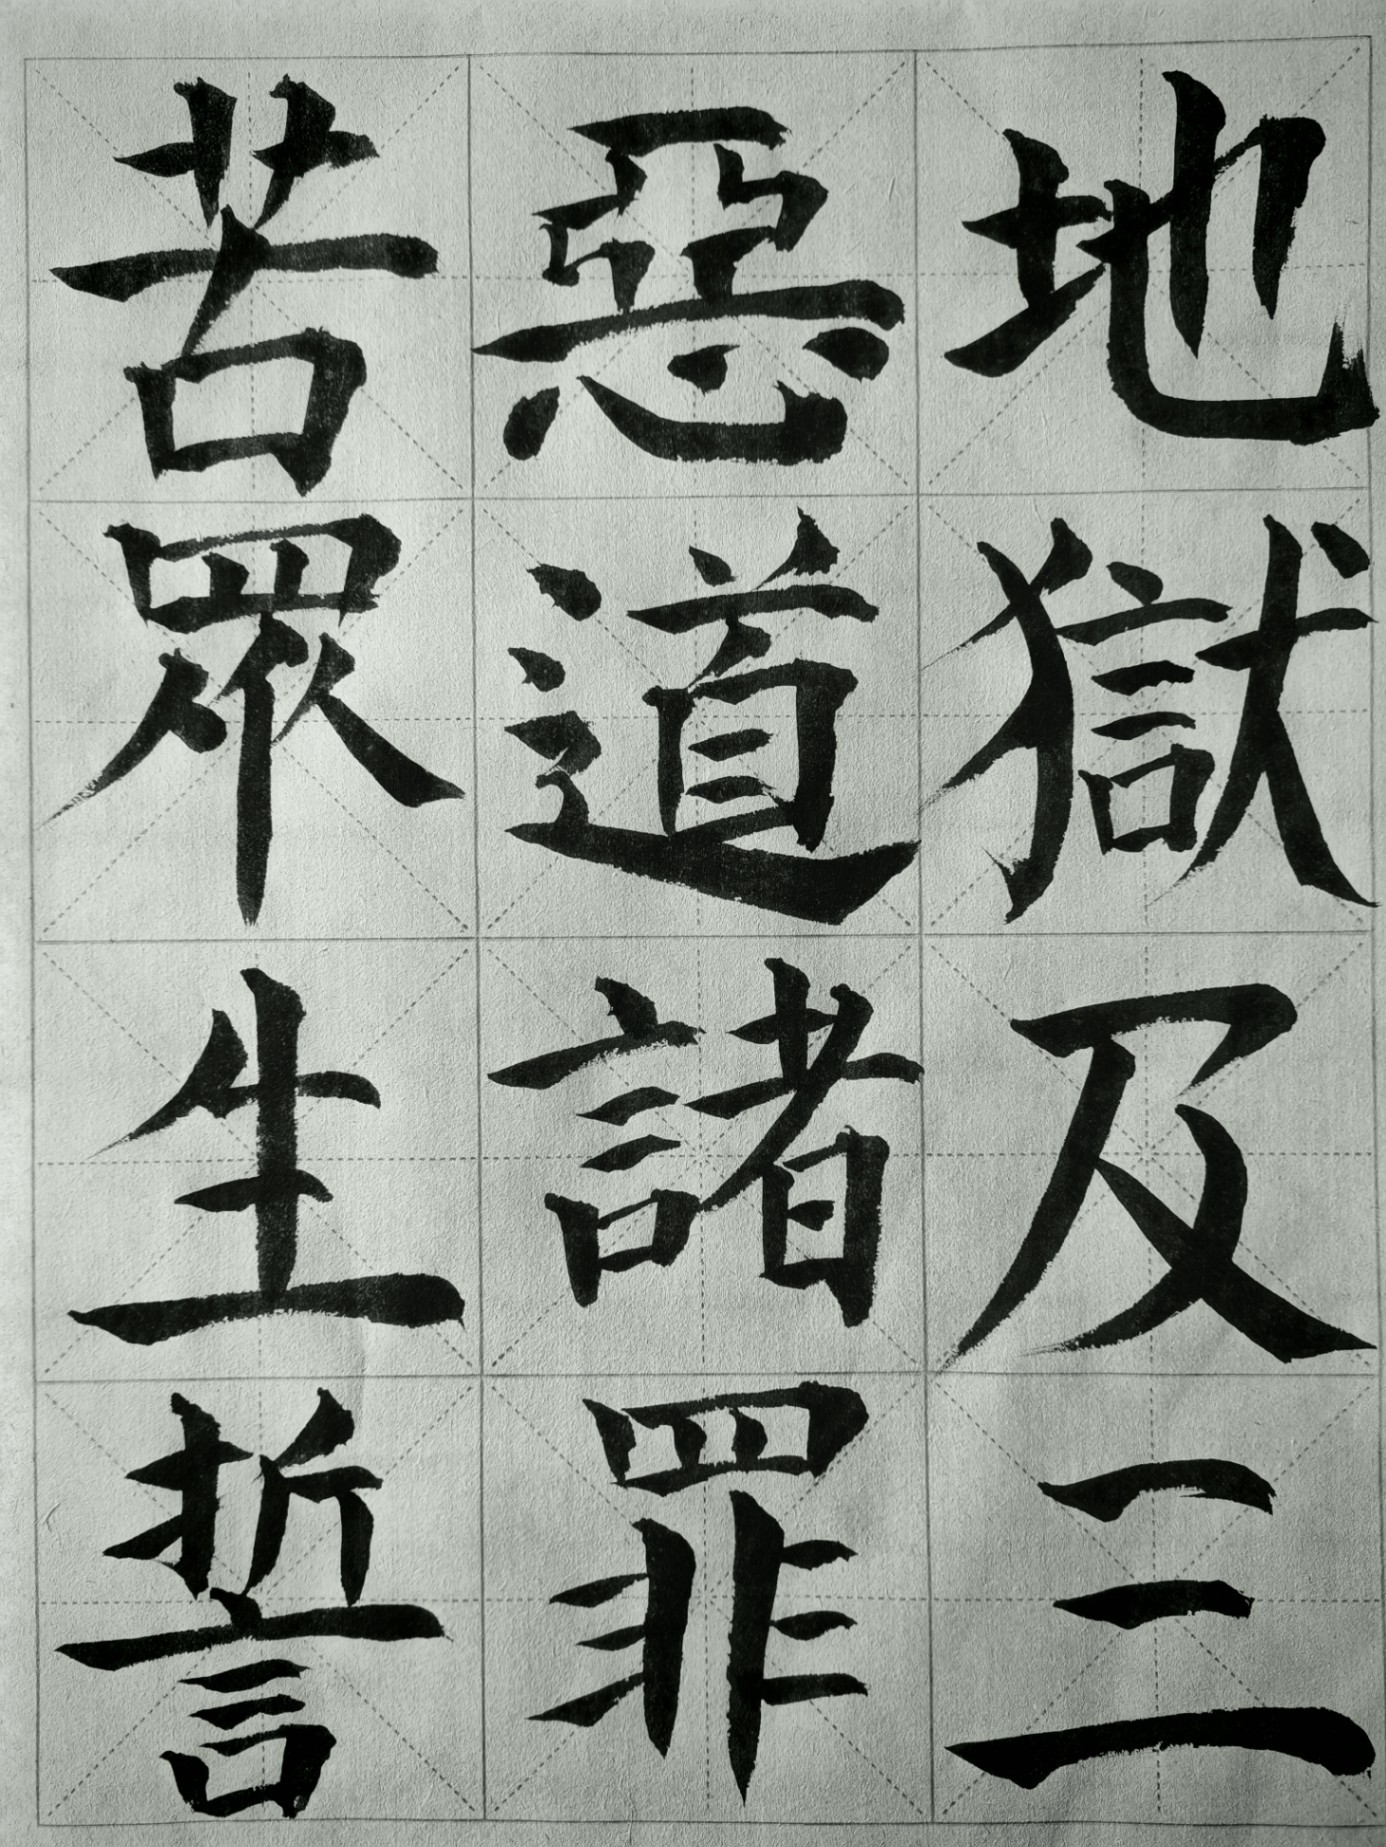 地獄及三
惡道諸罪
苦眾生誓